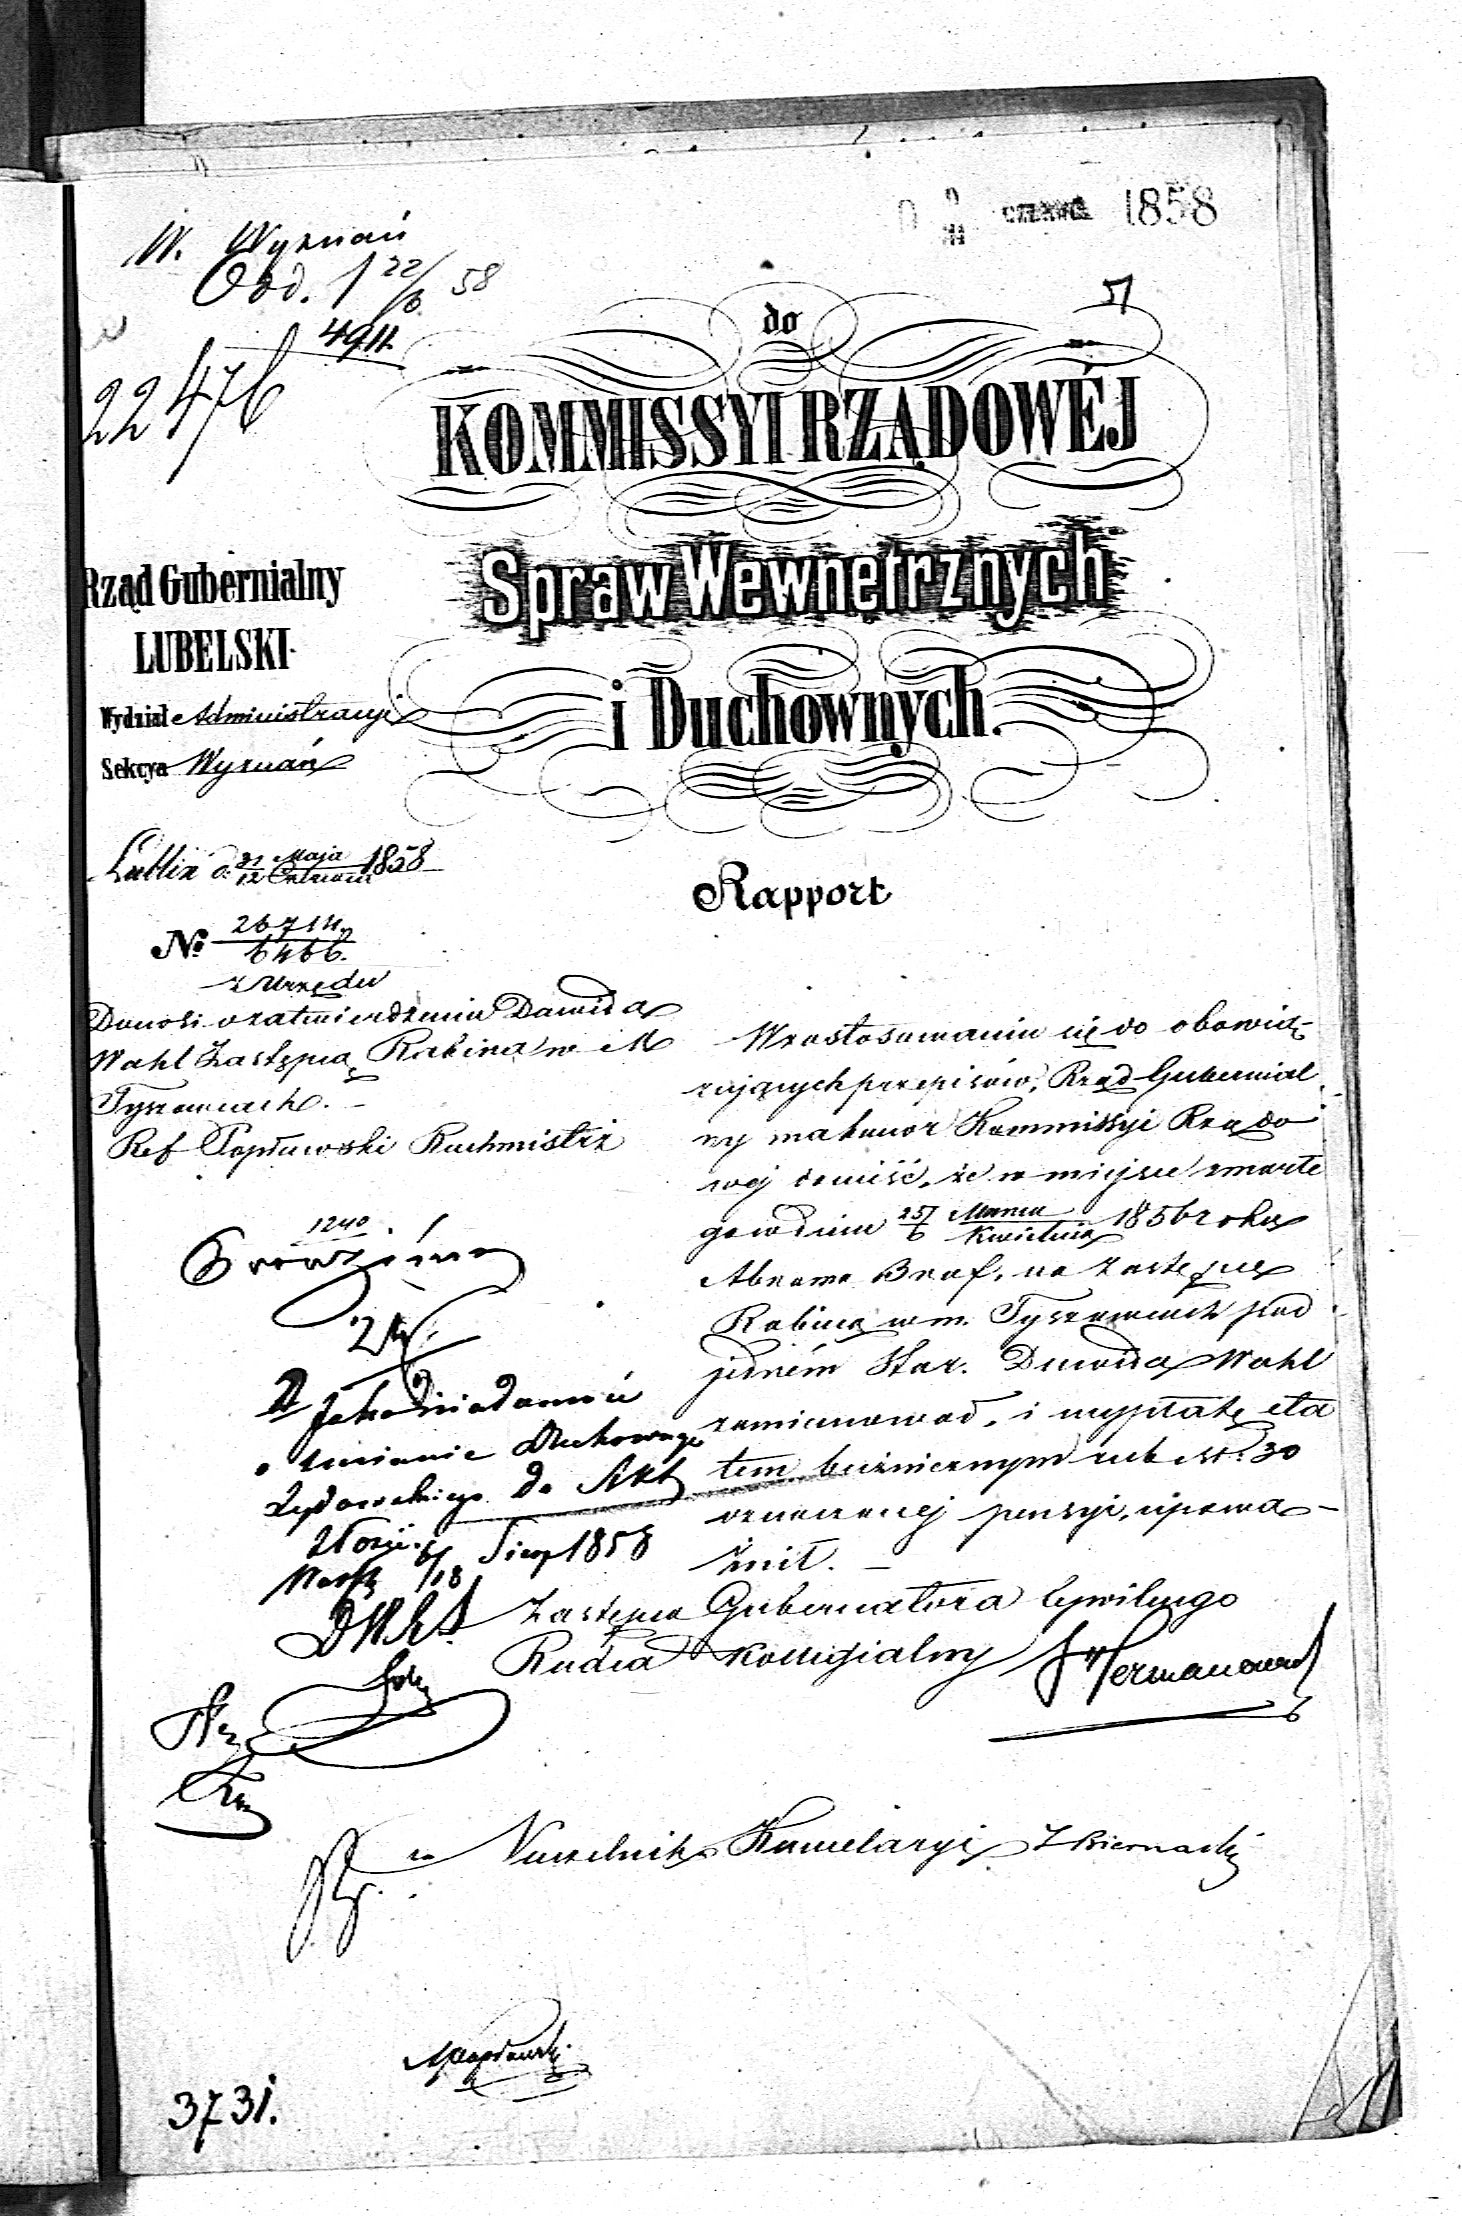 CZERWCA 1858
W. Wyznań
Odd. 1 22/6 58
4911
51
22476
do
KOMMISSYI RZĄDOWÉJ
Spraw Wewnętrznych
i Duchownych.
Rząd Gubernialny
LUBELSKI
Wydział Administracyj
Sekcya Wyznań
Lublin d. 31 Maja / 12 Czerwca 1858
Rapport
№ 26714 / 6466.
z Urzędu
Donosi o zatwierdzeniu Dawida
Wahl Zastępcą Rabina w M
Tyszowcach. -
Ref Popławski Rachmistrz
W zastosowaniu się do obowią-
zujących przepisów, Rząd Gubernial
ny ma honor Kommissyi Rządo
wej donieść, że w miejsce zmarłe
go w dniu 25 Marca / 6 Kwietnia 1856 roku
Abrama Braf, na Zastępcę
Rabina w m. Tyszowcach pod
jedném Star. Dawida Wahl
zamianował, i wypłatę eta
tem bużnicznym rub sr. 30
oznaczonej pensyi, upowa-
żnił. -
1240
24
Jako wiadomość
o zmianie Duchownego
Żydowskiego do Akt
złożyć.
Warsz 6/18 Sierp 1858
Zastępca Gubernatora Cywilnego
Radca Kollegialny J Hermanowski
za Naczelnik Kancelaryi Z Biernacki
MPopławski
3731.